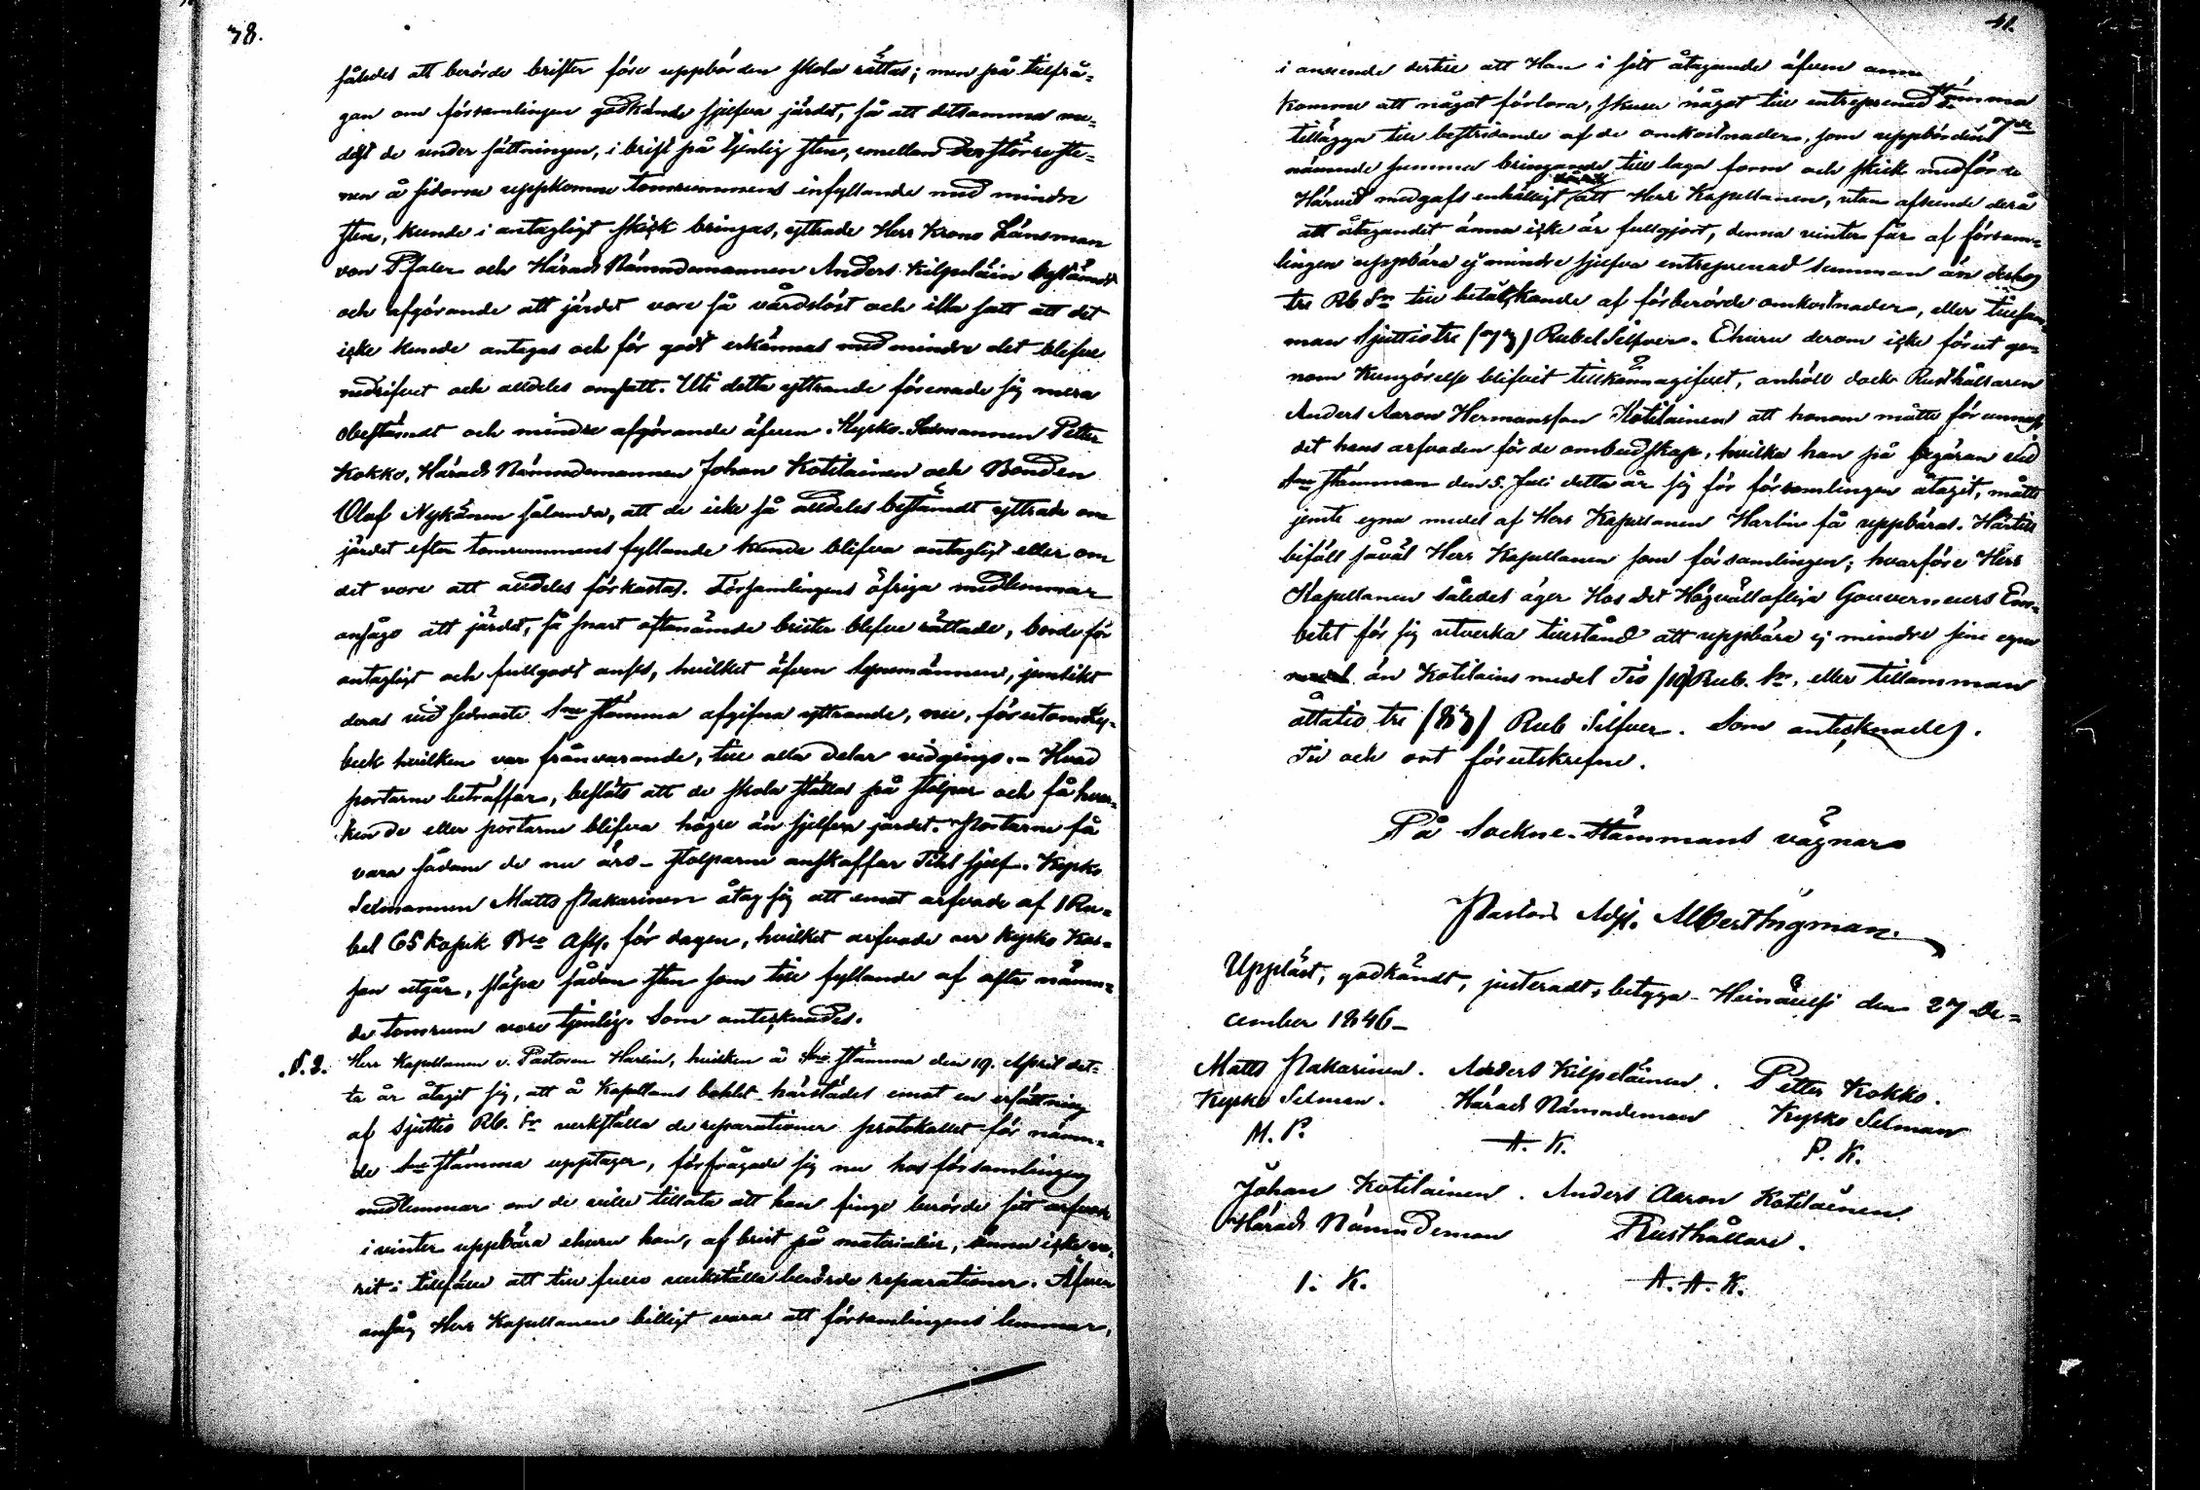 38.
således att berörde brister före uppbörden skola rättas; men på tillfrå-
gan om församlingen godkände sjelfva järdet, så att detsamma me-
delst de under sättningen, i brist på tjenlig sten, emellan de större ste-
nen å sidorne uppkomne tomrummens infyllande med mindre
sten, kunde i antagligt skick bringas, yttrade Herr Krono Länsman
von Pfaler och Härads Nämndemannen Anders Kilpeläin bestämdt
och afgörande att järdet vore så vårdslöst och illa satt att det
icke kunde antagas och för godt erkännas med mindre det blefve
nedrifvet och alldeles omsatt. Uti detta yttrande förenade sig mera
obestämdt och mindre afgörande äfven Kyrko-Sexmannen Petter
Kokko, Härads Nämndemannen Johan Kotilainen och Bonden
Olof Nykänen sålunda, att de icke så alldeles bestämdt yttrade om
järdet efter tomrummens fyllande kunde blifva antagligt eller om
det vore att alldeles förkastas. Församlingens öfriga medlemmar
ansågo att järdet, så snart oftanämde brister blefve rättade, borde för
antagligt och fullgodt anses, hvilket äfven Synemännen, jemlikt
deras vid sednaste Sne stämma afgifna yttrande, nu, förutom Ly-
beck hvilken var frånvarande, till alla delar vidgingo. - Hvad
portarne beträffar, beslöts att de skola ställas på stolpar och få hvar-
ken de eller portarne blifva högre än sjelfva järdet. Portarne få
vara sådane de nu äro - stolparne anskaffar Tiht sjelf. Kyrko
Sexmannen Matts Pakarinen åtog sig att emot arfvode af 1 Ru-
bel 65 Kopek Bco Ass. för dagen, hvilket arfvode ur Kyrko Kas-
san utgår, släpa sådan sten som till fyllande af ofta nämn-
de tomrum vore tjenlig. Som antecknades.
§. 2. Herr Kapellanen v. Pastoren Harlin, hvilken å Sne stämma den 19. April det-
ta år åtagit sig, att å Kapellans bohlet härstädes emot en ersättning
af Sjuttio Rb. Sr verkställa de reparationer protokollet för nämn-
de Sne stämma upptager, förfrågade sig nu hos församlingens
medlemmar om de ville tillåta att han finge berörde sitt arfvode
i vinter uppbära ehuru han, af brist på materialier, ännu icke va-
rit i tillfälle att till fullo verkställa berörde reparationer. Äfven
ansåg Herr Kapellanen billigt vara att församlingens lemmar,
41.
i anseende dertill att Han i sitt åtagande äfven annu
komme att något förlora, skulle något till entreprenad Summa
tillägga till bestridande af de omkostnader, som uppbördens
nämnde summa bringande till laga form och skick medförde
Härvid medgafs enhälligt att Herr Kapellanen, utan afseende derå
att åtagandet ännu icke är fullgjort, denna vinter får af försam-
lingen uppbära ej mindre sjelfva entreprenad summan än derhos
tre Rb Sr till betäckande af förberörde omkostnader, eller tillsam-
man Sjuttiotre (73) Rubel Silfver. Ehuru derom icke förut ge-
nom Kungörelse blifvit tillkännagifvet, anhöll dock Rusthållaren
Anders Aaron Hermansson Kotilainen att honom måtte förunnas
det hans arfvoden för de ombudskap, hvilka han på begäran vid
Sne stämman den 5. Juli detta år sig för församlingen åtagit, måtte
jemte egna medel af Herr Kapellanen Harlin få uppbäras. Härtill
biföll såväl Herr Kapellanen som församlingen; hvarföre Herr
Kapellanen således äger Hos Det Högvällofliga Gouverneurs Em-
betet för sig utverka tillstånd att uppbära ej mindre sine egna
medel än Kotilains medel Tio (10) Rub. Sr, eller tillsamman
åttatio tre (83) Rub Silfver. Som antecknades.
Tid och ort förutskrefne.
På Sockne-Stämmans vägnar
Pastors Adj. Albert Ingman.
Uppläst, godkändt, justeradt, betyga - Heinävesi den 27 De-
cember 1846 -
Matts Pakarinen. Anders Kilpeläinen. Petter Kokko.
Kyrko Sexman. Härads Nämndeman Kyrko Sexman
M. P. A. K. P. K.
Johan Kotilainen. Anders Aaron Kotilainen.
Härads Nämndeman Rusthållare.
I. K. A. A. K.